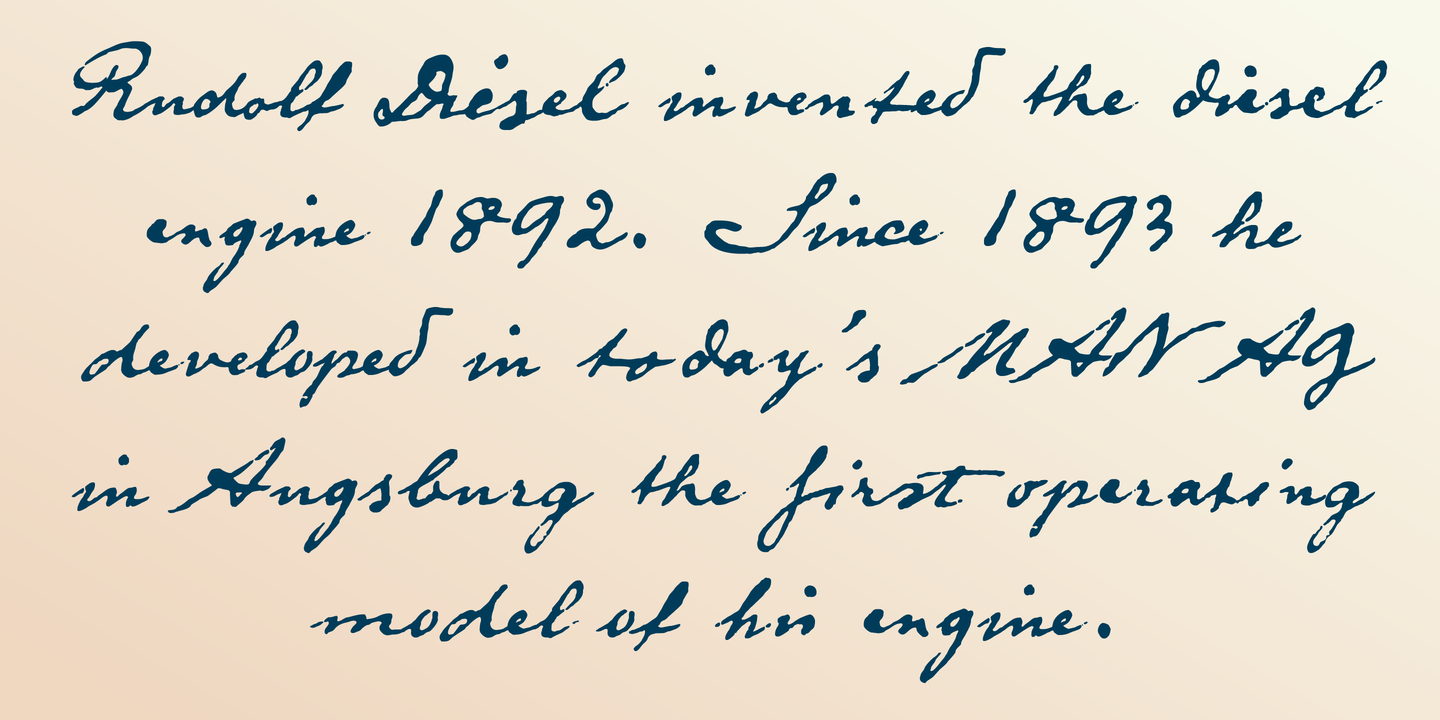 Rudolf Diesel invented the diesel
engine 1892. Since 1893 he
developed in today's MAN AG
in Augsburg the first operating
model of his engine.